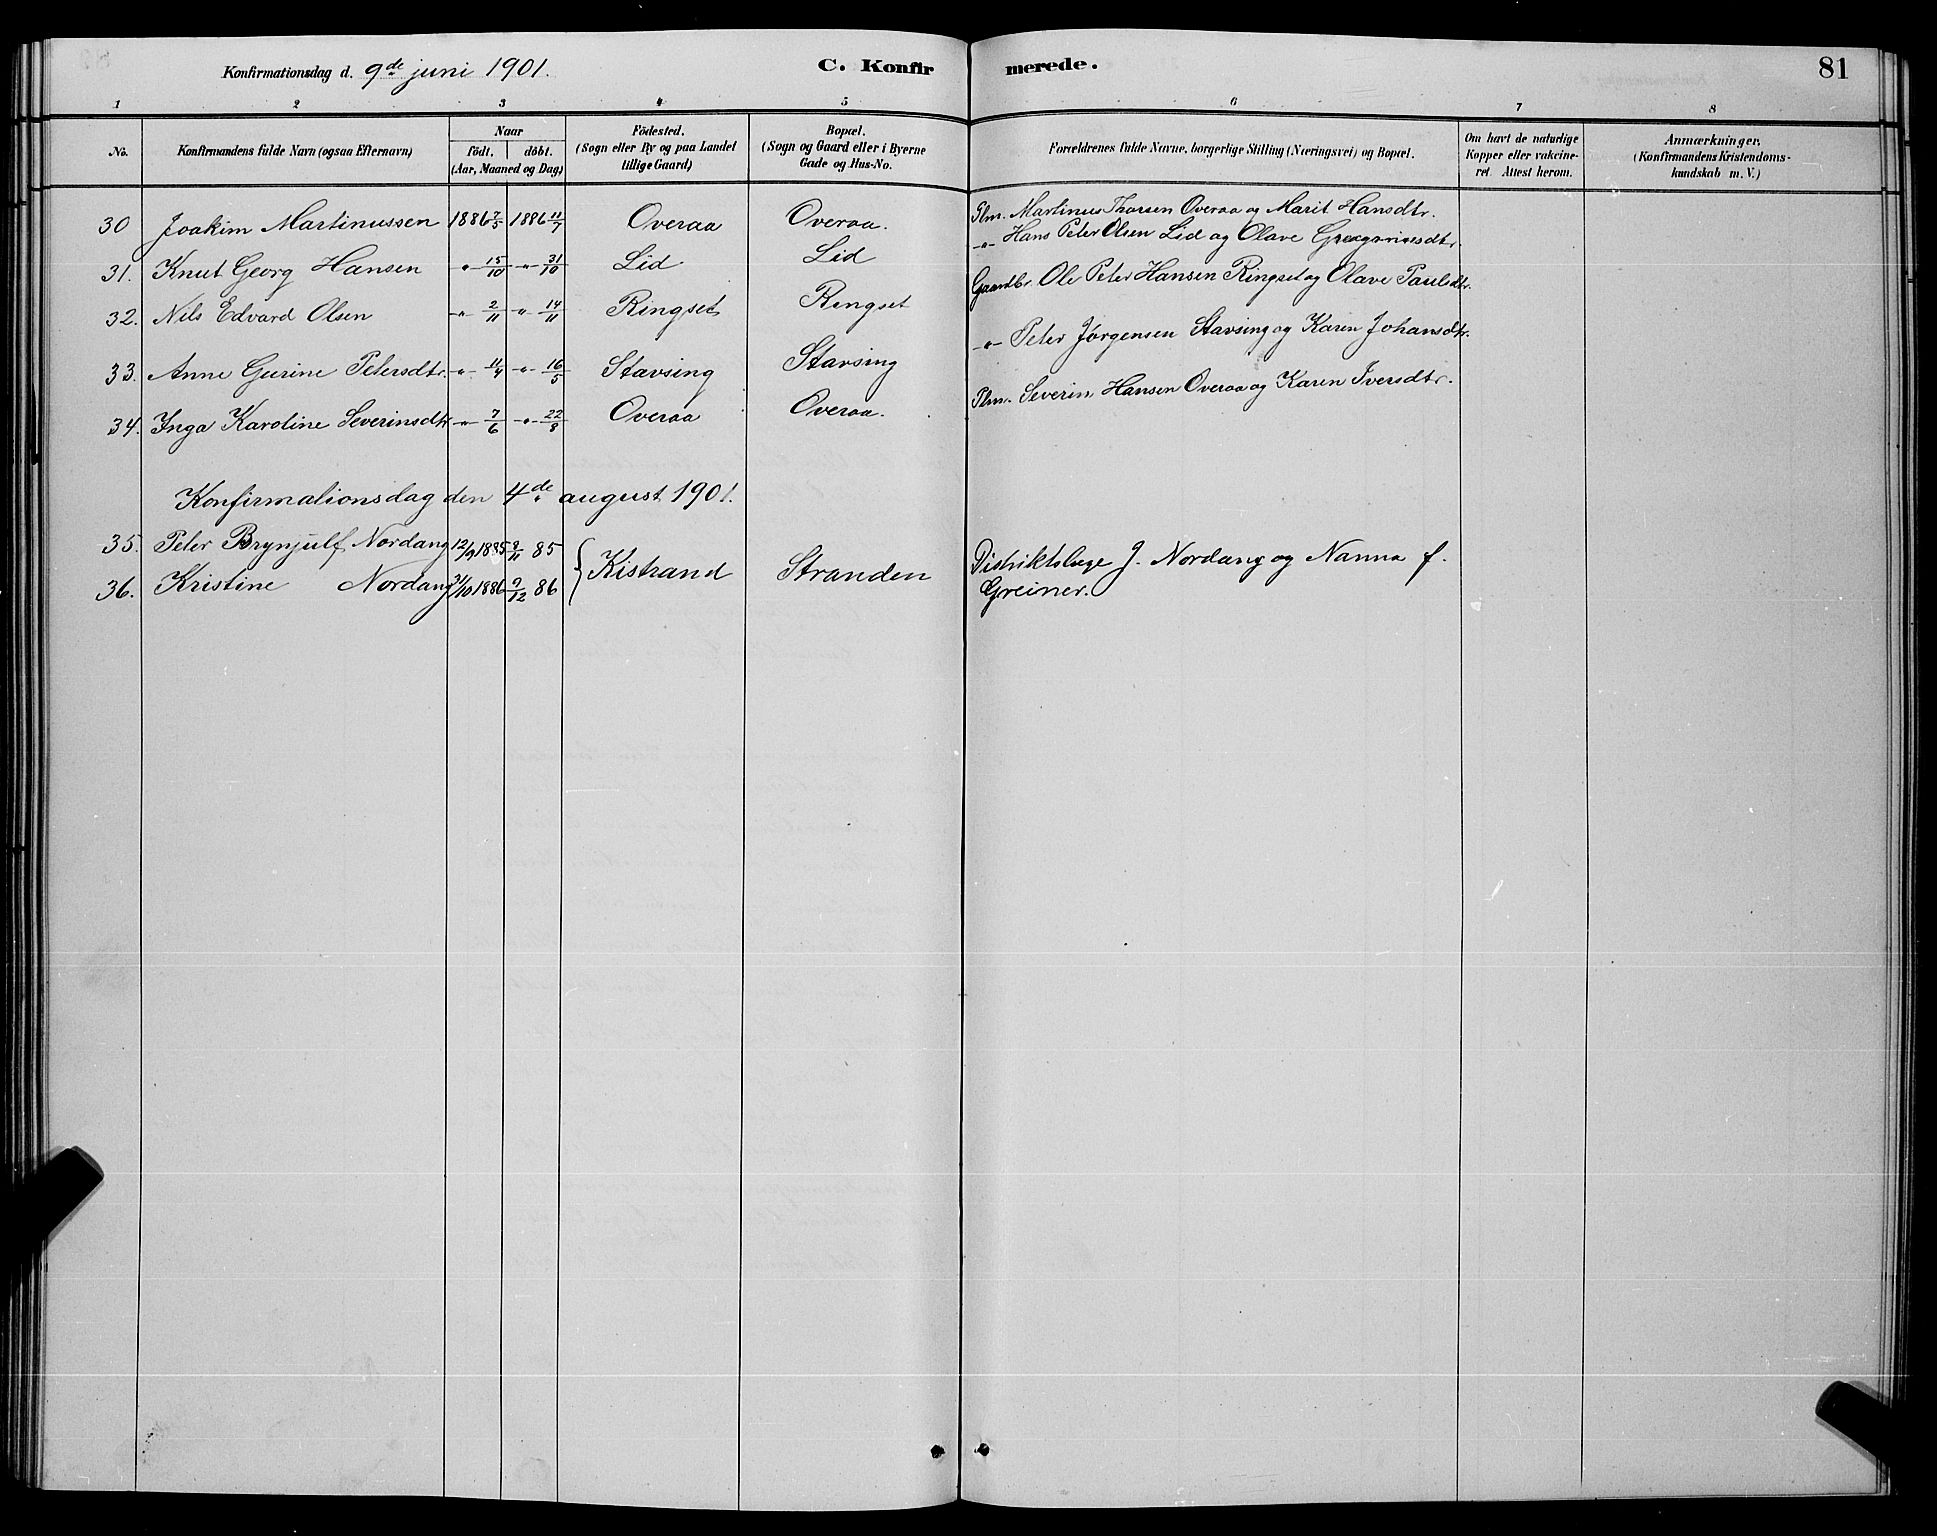 Konfirmationsdag d. 9de juni 1901. C. Konfirmerede. 81
1 2 3 4 5 6 7 8
No. Konfirmandens fulde Navn (ogsaa Efternavn) Naar födt. döbt. (Aar, Maaned og Dag) Födested. (Sogn eller By og paa Landet tillige Gaard) Bopæl. (Sogn og Gaard eller i Byerne Gade og Hus-No. Forældrenes fulde Navne, borgerlige Stilling (Næringsvei) og Bopæl. Om havt de naturlige Kopper eller vakcineret. Attest herom. Anmærkninger. (Konfirmandens Kristendomskundskab m. V.)
30 Joakim Martinussen 1886 7/5 1886 11/7 Overaa Overaa. Plm. Martinus Thorsen Overaa og Marit Hansdtr.
31. Knut Georg Hansen -"- 15/10 -"- 31/10 Lid Lid -"- Hans Peter Olsen Lid og Olave Gregoriusdtr.
32. Nils Edvard Olsen -"- 2/11 -"- 14/11 Ringset Ringset Gaardbr. Ole Peter Hansen Ringset og Olave Paulsdtr.
33. Anne Gurine Petersdtr. -"- 11/4 -"- 16/5 Stavsing Stavsing -"- Peter Jörgensen Stavsing og Karen Johansdtr.
34. Inga Karoline Severinsdtr -"- 7/6 -"- 22/8 Overaa Overaa. Plm. Severin Hansen Overaa og Karen Iversdtr.
Konfirmationsdag den 4de august 1901.
35. Peter Brynjulf Nordang 12/9 1885 8/11 85 { Kistrand Stranden Distriktslæge J. Nordang og Nanna f.
36. Kristine Nordang 31/10 1886 9/12 86 Greiner.